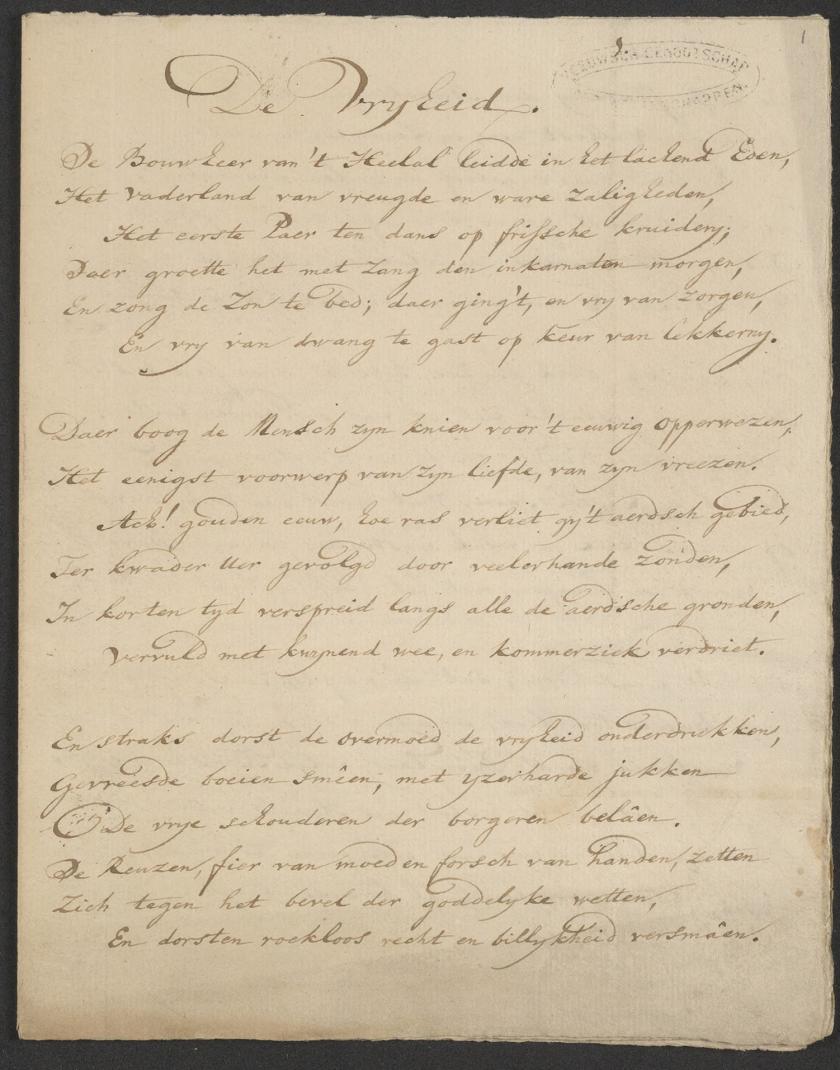 1
ZEEUWSCH GENOOTSCHAP
De Vryheid.
De Bouwheer van 't Heelal leidde in het lachend Eden,
Het vaderland van vreugde en ware zaligheden,
Het eerste Paer ten dans op frissche kruidery;
Daer groette het met zang den inkarnaten morgen,
En zong de Zon te bed; daer ging't, en vry van zorgen,
En vry van dwang te gast op keur van lekkerny.
Daer boog de Mensch zyn knien voor 't eeuwig opperwezen,
Het eenigst voorwerp van zyn liefde, van zyn vreezen.
Ach! gouden eeuw, hoe ras verliet gy 't aerdsch gebied,
Ter kwader uer gevolgd door veelerhande zonden,
In korten tyd verspreid langs alle de aerdsche gronden,
Vervuld met kwynend wee, en kommerziek verdriet.
En straks dorst de overmoed de vryheid onderdrukken,
Gevreesde boeien smêen, met yzerharde jukken
De vrye schouderen der borgeren belâen.
De Reuzen, fier van moed en forsch van handen, zetten
Zich tegen het bevel der goddelyke wetten,
En dorsten roekloos recht en billykheid versmâen.